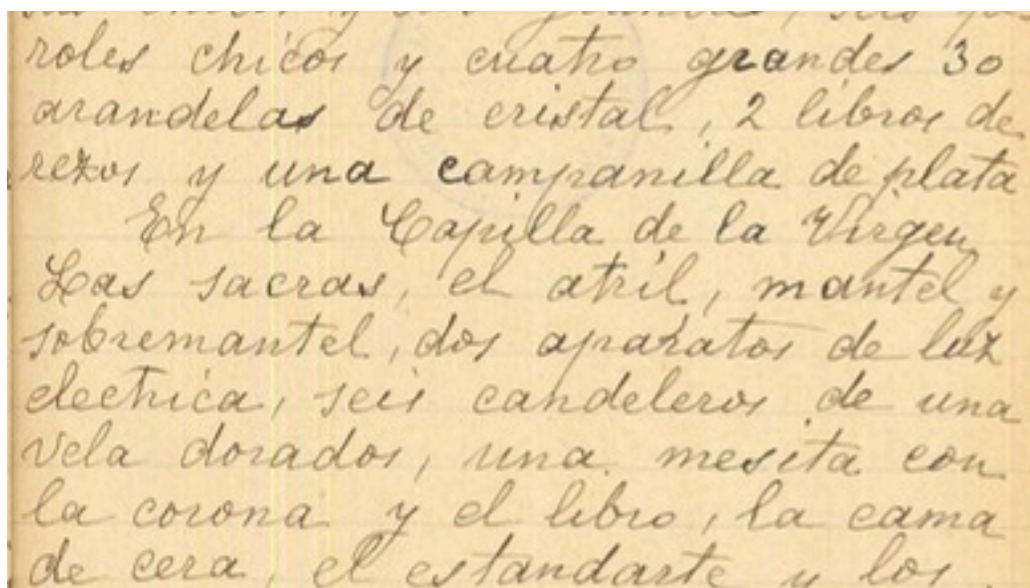 roles chicos y cuatro grandes 30
arandelas de cristal, 2 libros de
rezos y una campanilla de plata
En la Capilla de la Virgen
Las sacras, el atril, mantel y
sobremantel, dos aparatos de luz
electrica, seis candeleros de una
vela dorados, una mesita con
la corona y el libro, la cama
de cera, el estandarte y los